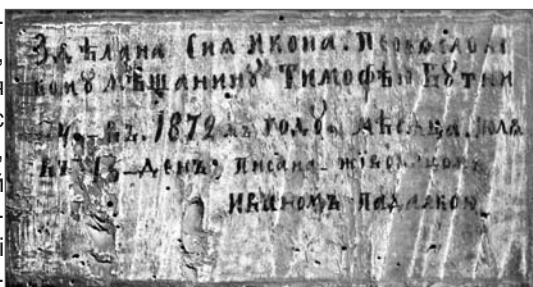 Здѣлана Сия Икона. Первослові
кому Мѣщанину Тимофѣю Бутки
Ву. въ. 1872 мъ году. мѣсяца. юля
въ 13 день; писана живописцомъ
Иваномъ Падалкою